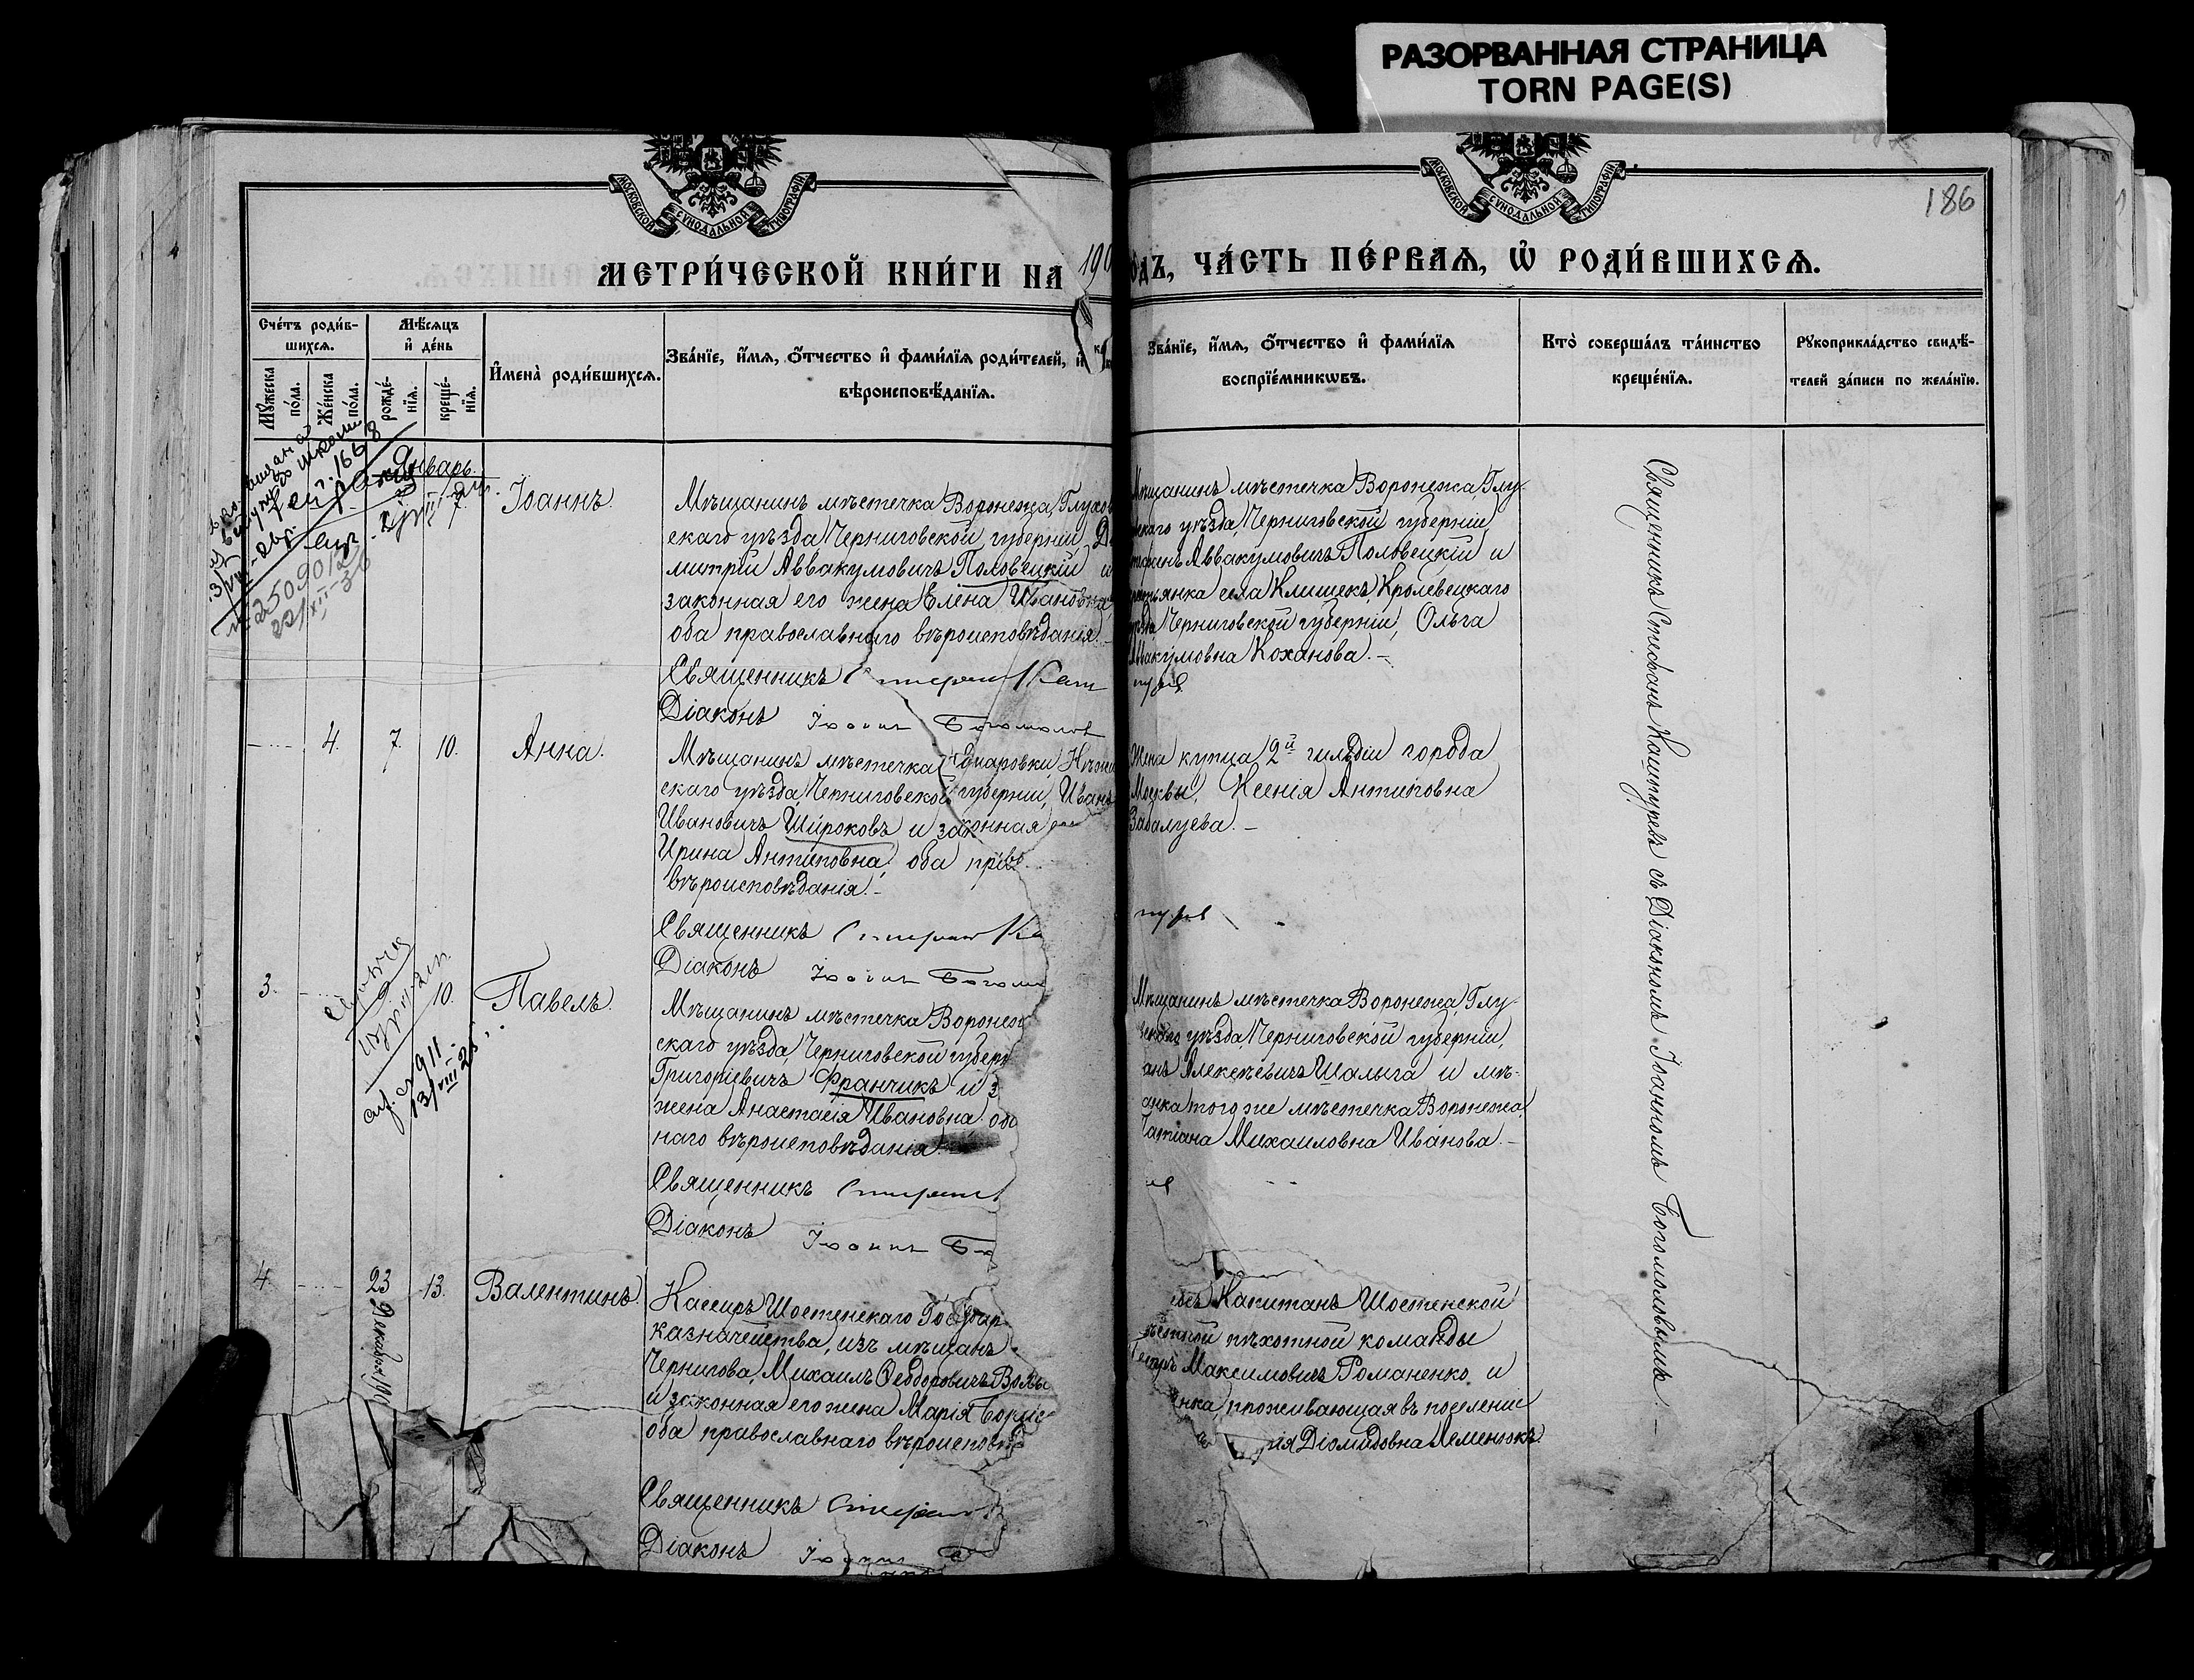 РАЗОРВАННАЯ СТРАНИЦА
TORN PAGE(S)
МОСКОВСКОЙ СѴНОДАЛЬНОЙ ТИПОГРАФІИ
МОСКОВСКОЙ СѴНОДАЛЬНОЙ ТИПОГРАФІИ
186
МЕТРИ́ЧЕСКОЙ КНИ́ГИ НА 190
ОДЪ, ЧА́СТЬ ПЕ́РВАѦ, Ѽ РОДИ́ВШИХСѦ.
Сче́тъ роди́в-
шихсѧ.
Мꙋ́жеска по́ла.
Же́нска по́ла.
Мѣ́сѧцъ
и҆ де́нь
рожде́-
нїѧ.
креще́-
нїѧ.
И҆мена̀ роди́вшихсѧ.
Зва́нїе, и҆́мѧ, ѻ҆́тчество и҆ фами́лїѧ роди́телей, и҆
вѣроисповѣ́данїѧ.
Зва́нїе, и҆́мѧ, ѻ҆́тчество и҆ фами́лїѧ
воспрїе́мникѡвъ.
Кто̀ соверша́лъ та́инство
креще́нїѧ.
Рꙋкоприкла́дство свидѣ́-
телей за́писи по жела́нїю.
Январь.
7.
Іоаннъ.
Мѣщанинъ мѣстечка Воронежа, Глухов
скаго уѣзда, Черниговской губерніи, Ди
митрій Аввакумовичъ Половецкій и
законная его жена Елена Ивановна,
оба православнаго вѣроисповѣданія.
Священникъ Стефан Каш
Діаконъ Іоаннъ Богомолов
Мѣщанинъ мѣстечка Воронежа, Глу-
скаго уѣзда, Черниговской губерніи,
Аввакумовичъ Половецкій и
янка села Клишекъ, Кролевецкаго
Черниговской губерніи, Ольга
вакумовна Коханова. –
пуров
250901
4. 7. 10.
Анна.
Мѣщанинъ мѣстечка
скаго уѣзда, Черниговской губерніи, Иванъ
Ивановичъ Широковъ и законная его
Ирина Антиповна, оба право
вѣроисповѣданія. –
Священникъ Стефан Ка
Діаконъ Іоаннъ Богомо
Жена купца 2й гильдіи города
Москвы, Ксенія Антиповна
Забалуева. –
пуров
3. 10.
911
Павелъ.
Мѣщанинъ мѣстечка Воронеж
скаго уѣзда Черниговской губерн
Григоріевичъ Франчикъ и з
жена Анастасія Ивановна, оба
наго вѣроисповѣданія.
Священникъ Стефан
Діаконъ Іоаннъ Бо
Мѣщанинъ мѣстечка Воронежа, Глу-
скаго уѣзда, Черниговской губерніи,
анъ Алексѣевичъ Шалыга и мѣ-
анка того же мѣстечка Воронежа
Татіана Михаиловна Иванова. –
ов
4. 23 13.
Декабря 190
Валентинъ.
Кассиръ Шостенскаго Государ
казначейства, изъ мѣщанъ
Чернигова, Михаилъ Ѳеодоровичъ
и законная его жена Марія Борис
оба православнаго вѣроисповѣд
Священникъ Стефан
Діаконъ Іоаннъ Б
Капитанъ Шостенской
мѣстной пѣхотной команды
Петръ Максимовичъ Романенко и
проживающая въ поселеніи
ія Діомидовна Леменюкъ.
Священникъ Стефанъ Каштуревъ съ Діакономъ Іоанномъ Богомоловымъ. –